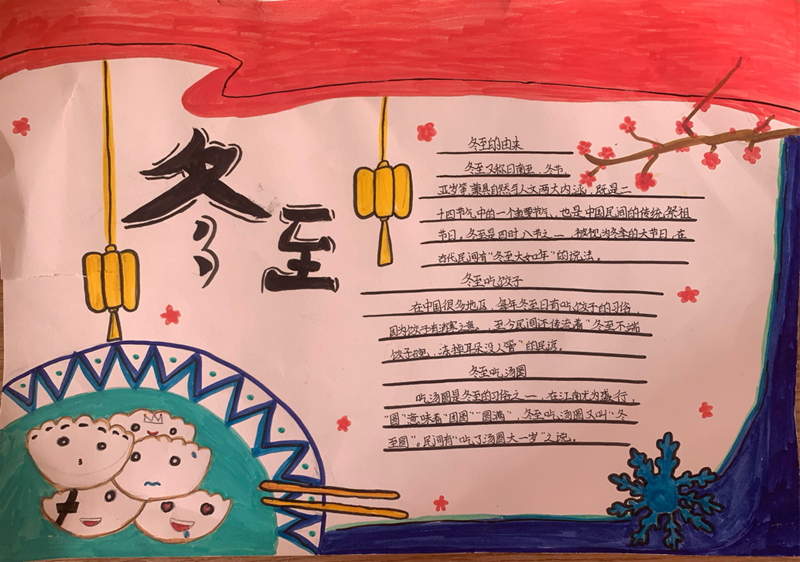 冬至
冬至的由来
冬至又称日南至、冬节、
亚岁等,兼具自然与人文两大内涵,既是二
十四节气中的一个重要节气,也是中国民间的传统祭祖
节日。冬至是四时八节之一,被视为冬季的大节日,在
古代民间有“冬至大如年”的说法。
冬至吃饺子
在中国很多地区,每年冬至日有吃饺子的习俗,
因为饺子有消寒之意,至今民间还传流着“冬至不端
饺子碗,冻掉耳朵没人管”的民谚。
冬至吃汤圆
吃汤圆是冬至的习俗之一,在江南尤为盛行,
“圆”意味着“团圆”“圆满”,冬至吃汤圆又叫“冬
至团”。民间有“吃了汤圆大一岁”之说。